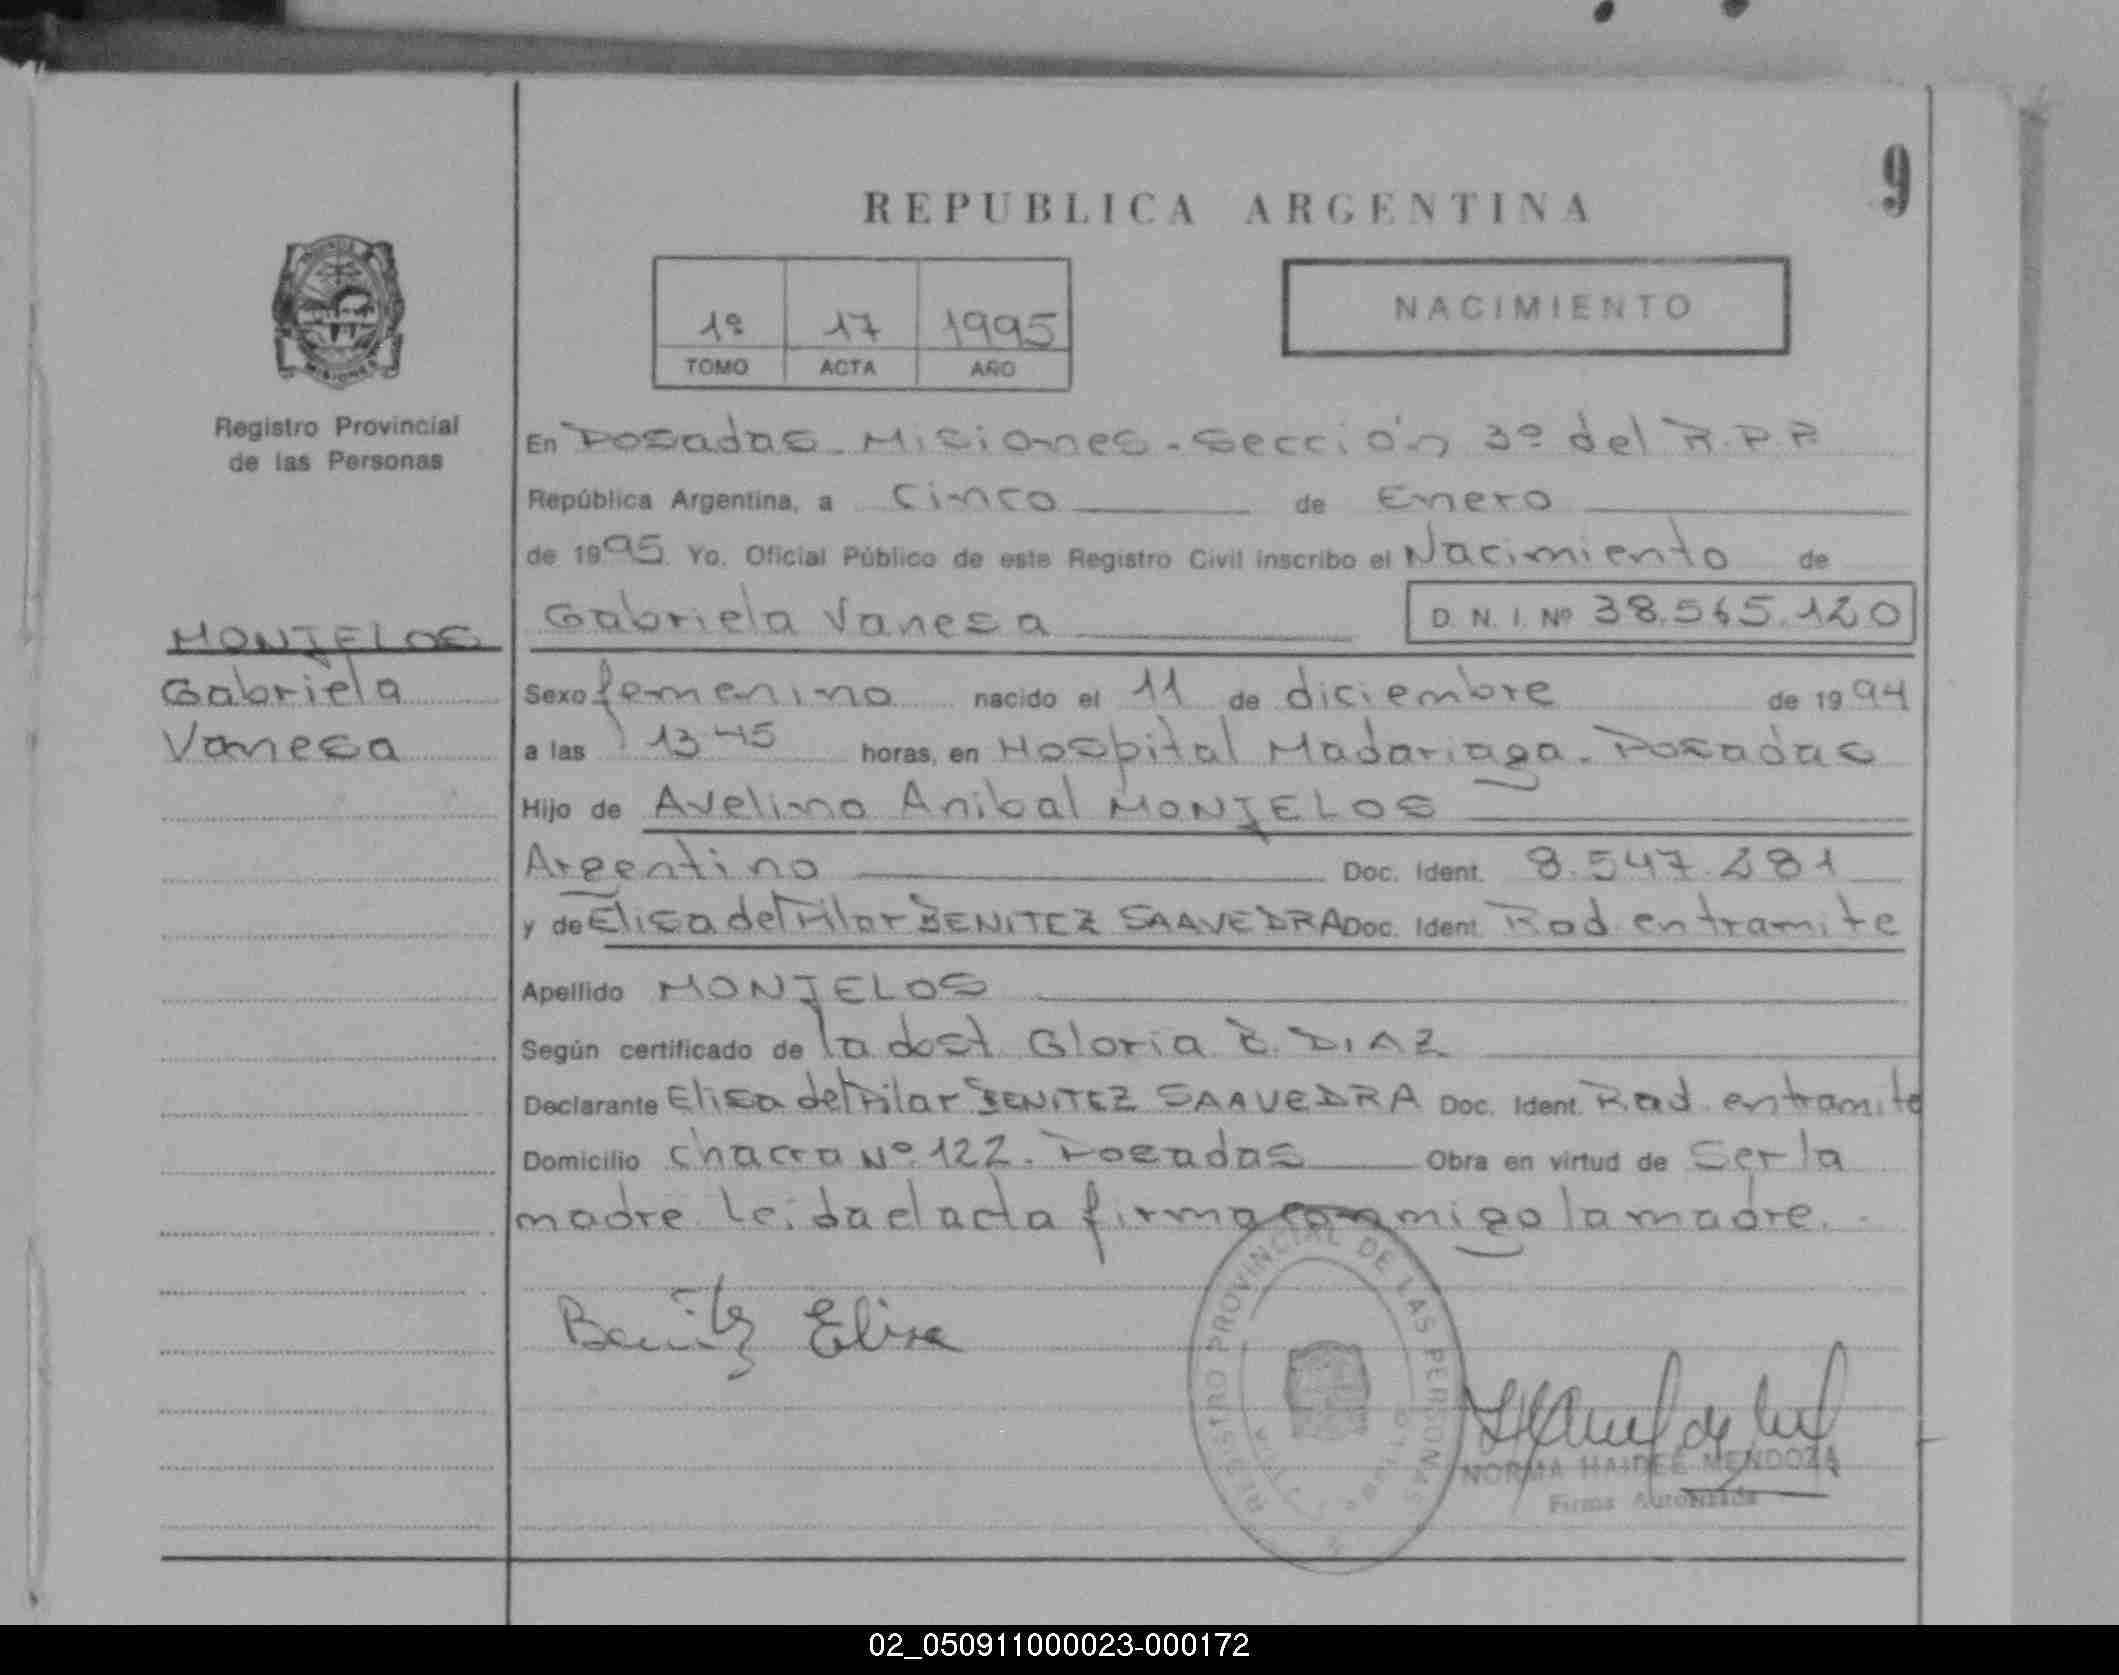 9
REPUBLICA ARGENTINA
NACIMIENTO
1º 17 1995
TOMO ACTA AÑO
MISIONES
Registro Provincial
de las Personas
En Posadas - Misiones - Sección 3º del R.P.P
República Argentina, a Cinco de Enero
de 1995. Yo, Oficial Público de este Registro Civil inscribo el Nacimiento de
Gabriela Vanesa D. N. I. Nº 38.565.120
MONJELOS
Gabriela
Vanesa
Sexo femenino nacido el 11 de diciembre de 1994
a las 13 45 horas, en Hospital Madariaga - Posadas
Hijo de Avelino Anibal MONJELOS
Argentino Doc. Ident. 8.547.281
y de Elisa del Pilar BENITEZ SAAVEDRA Doc. Ident. Rad. en tramite
Apellido MONJELOS
Según certificado de la dost. Gloria Z. DIAZ
Declarante Elisa del Pilar BENITEZ SAAVEDRA Doc. Ident. Rad. en tramite
Domicilio chacra Nº 122. Posadas Obra en virtud de Ser la
madre. Leida el acta firma conmigo la madre.
Benitez Elisa
REGISTRO PROVINCIAL DE LAS PERSONAS
NORMA HAIDEE MENDOZA
Firma Autorizada
02_050911000023-000172